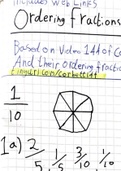 Includes Web Links
Ordering fractions
Based on Video 144 of Co
And their ordering fractio
1
10
1a) 2/5, 1/5, 3/10, 1/10